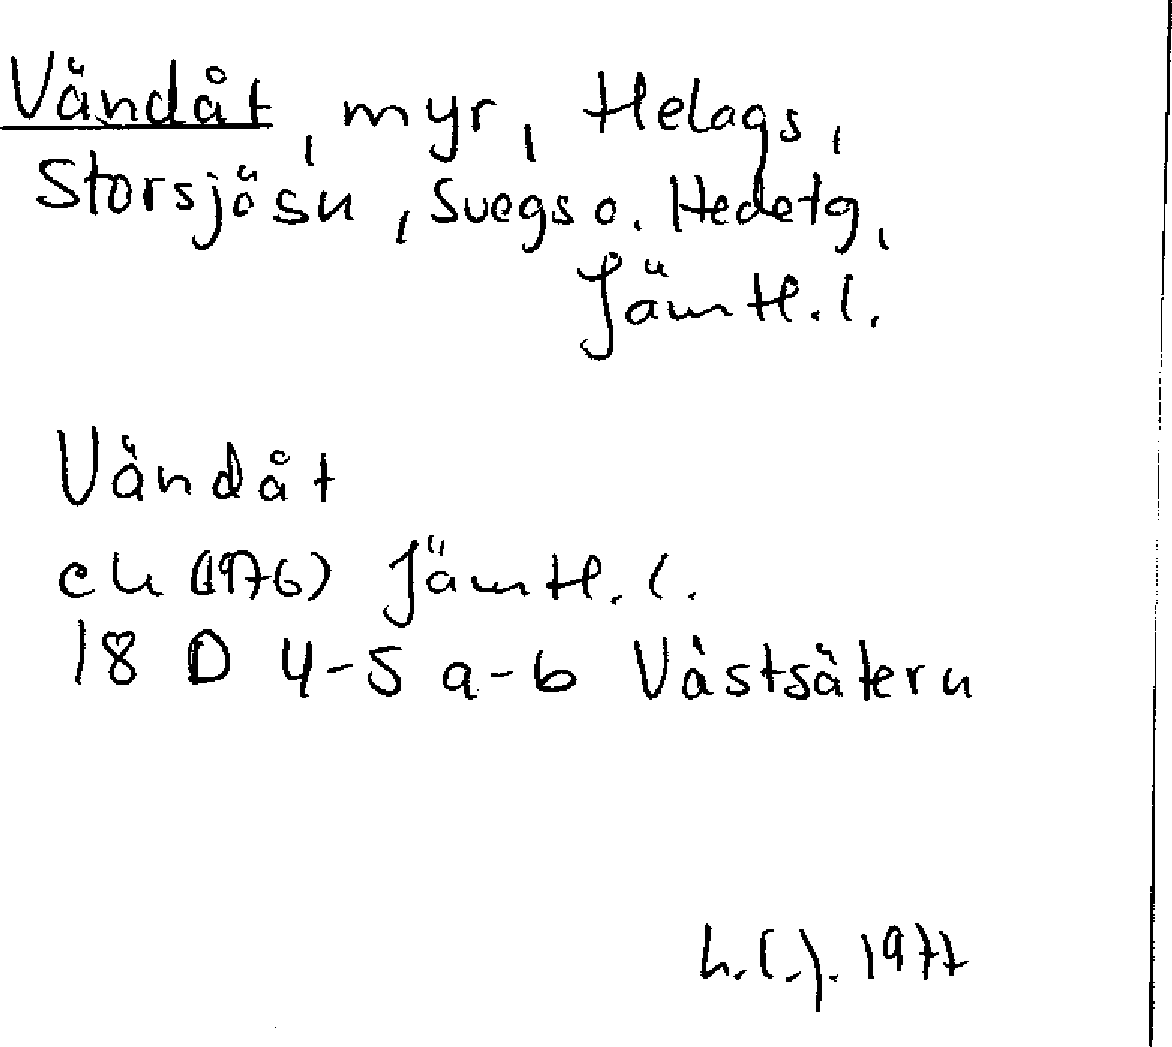 Våndåt, myr, Helags,
Storsjösn, Svegs o. Hedetg,
Jämtl. l.
Våndåt
ek (1976) Jämtl. l.
18 D 4-5 a-b Västsätern
1977